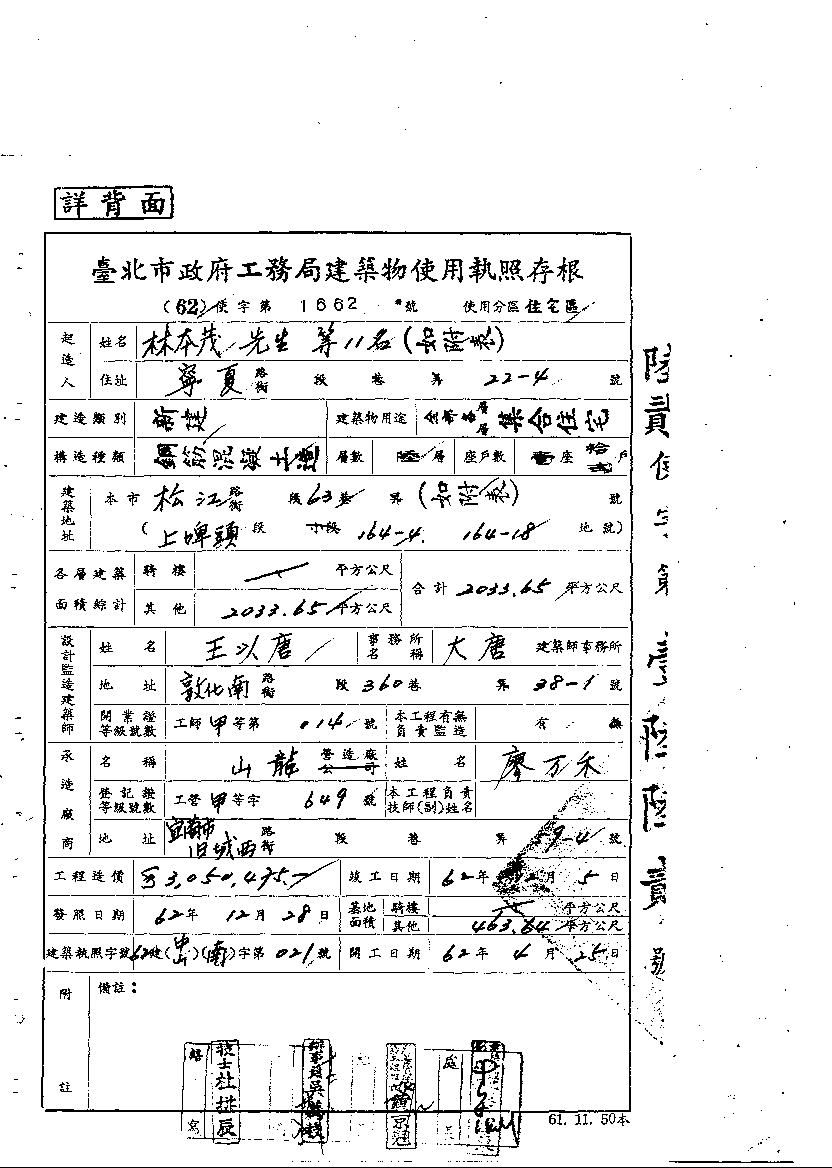 詳背面
臺北市政府工務局建築物使用執照存根
(62)使字第 1662 號 使用分區住宅區
起造人 姓名 林本茂 先生 等11名(如附表)
住址 寧夏 路街 段 巷 弄 22-4 號
建造類別 新建 建築物用途 全部各層 集合住宅
構造種類 鋼筋混凝土造 層數 陸層 座戶數 壹座 拾貳戶
建築地址 本市 松江 路街 段63巷 弄 (如附表) 號
(上埤頭 段 小段 164-4. 164-18 地號)
各層建築面積綜計 騎樓 平方公尺 合計 2033.65 平方公尺
其他 2033.65 平方公尺
設計監造建築師 姓名 王以唐 事務所名稱 大唐 建築師事務所
地址 敦化南 路街 段360巷 弄 38-1 號
開業證等級號數 工師甲等第 014 號 本工程有無負責監造 有 無
承造廠商 名稱 山龍 營造廠公司 姓名 廖万禾
登記證等級號數 工營甲等字 649 號 本工程負責技師(副)姓名
地址 旧城西 路街 段 巷 弄 59-4 號
工程造價 $3,050,475- 竣工日期 62年 12月 5日
發照日期 62年 12月 28日 基地面積 騎樓 平方公尺
其他 463.64 平方公尺
建築執照字號 62建(中山)(南)字第 021 號 開工日期 62年 4月 25日
附註 備註:
繕寫 技士杜拱辰 辦事員吳
61. 11. 50本
陸貳使字第壹陸陸貳號